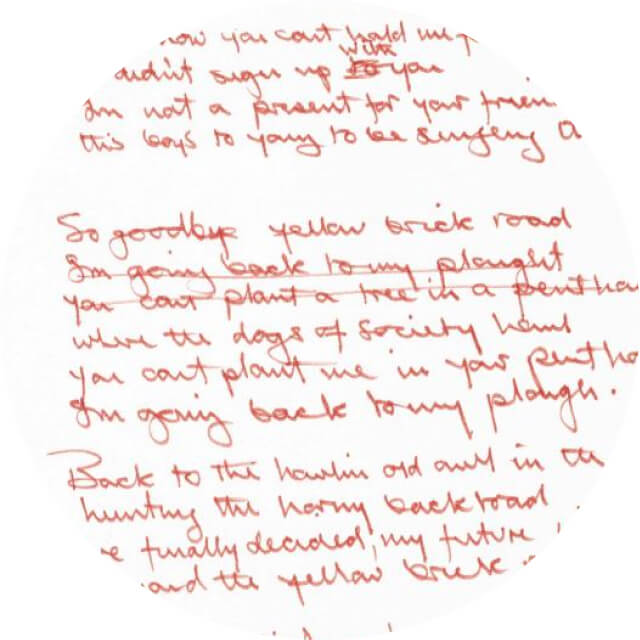 now you cant hold me
didn't sign up with to you
Im not a present for your frien
this boys to yong to be singing
So goodbye yellow brick road
Im going back to my plought
you cant plant a tree in a pentho
where the dogs of society howl
you cant plant me in your pentho
Im going back to my plough.
Back to the howlin old owl in the
hunting the horny back road
finally decided my future
and the yellow brick